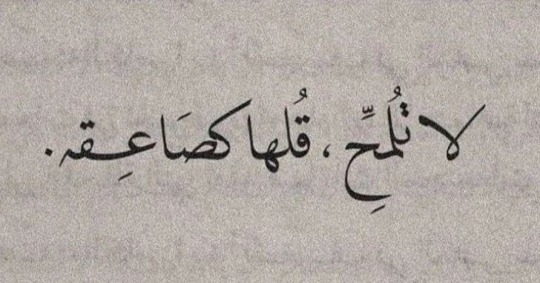 لا تُلمِّحِ ، قُلها كصَاعِقه.